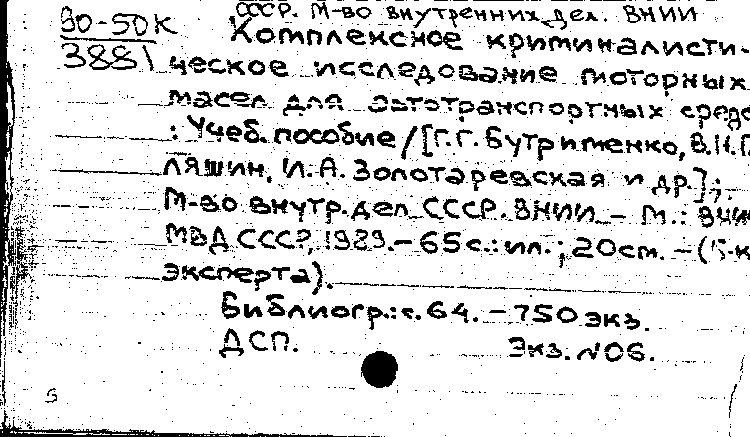 90-50К СССР. М-во внутренних дел. ВНИИ
3881 Комплексное криминалисти-
ческое исследование моторных
масел для автотранспортных средс
: Учеб. пособие / [Г.Г. Бутрименко, В.И.
ляшин, И.А. Золотаревская и др.];
М-во внутр. дел СССР. ВНИИ. – М.: ВНИИ
МВД СССР, 1989. – 65 с.: ил.; 20 см. – (Б-к
эксперта).
Библиогр.: с. 64. – 750 экз.
ДСП. Экз. N 06.